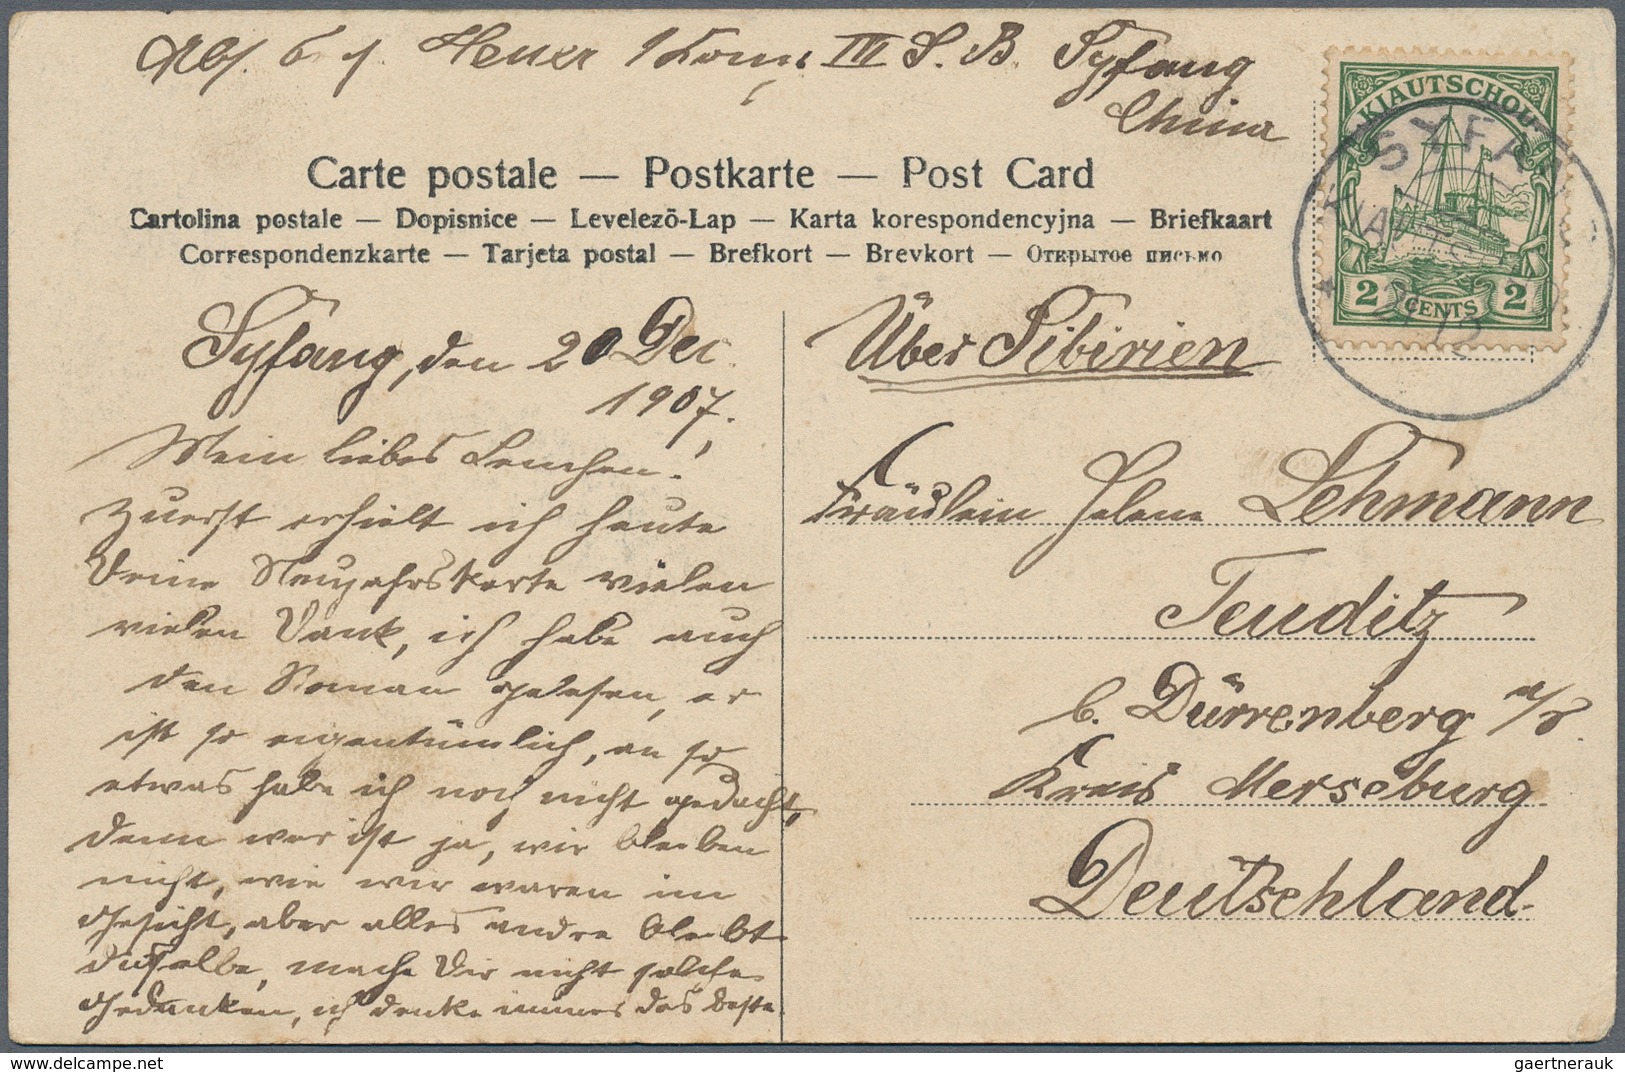 Abs. Heuer 1 Komp. III S. B. Syfang
China
KIAUTSCHOU
2 CENTS 2
SYFA
Carte postale — Postkarte — Post Card
Cartolina postale — Dopisnice — Levelezõ-Lap — Karta korespondencyjna — Briefkaart
Correspondenzkarte — Tarjeta postal — Brefkort — Brevkort — Открытое письмо
Syfang, den 20 Dec.
1907.
Mein liebes Lenchen!
Zuerst erhielt ich heute
Deine Neujahrskarte vielen
vielen Dank, ich habe auch
den Roman gelesen, er
ist so eigentümlich, an so
etwas habe ich noch nicht gedacht,
denn war ist ja, wir bleiben
nicht, wie wir waren im
Gesicht, aber alles andre bleibt
dasselbe, mache Dir nicht solche
Gedanken, ich denke immer das beste
Über Sibirien
Fräulein Helene Lehmann
Teuditz
b. Dürrenberg a/S.
Kreis Merseburg
Deutschland.
gaertnerauk